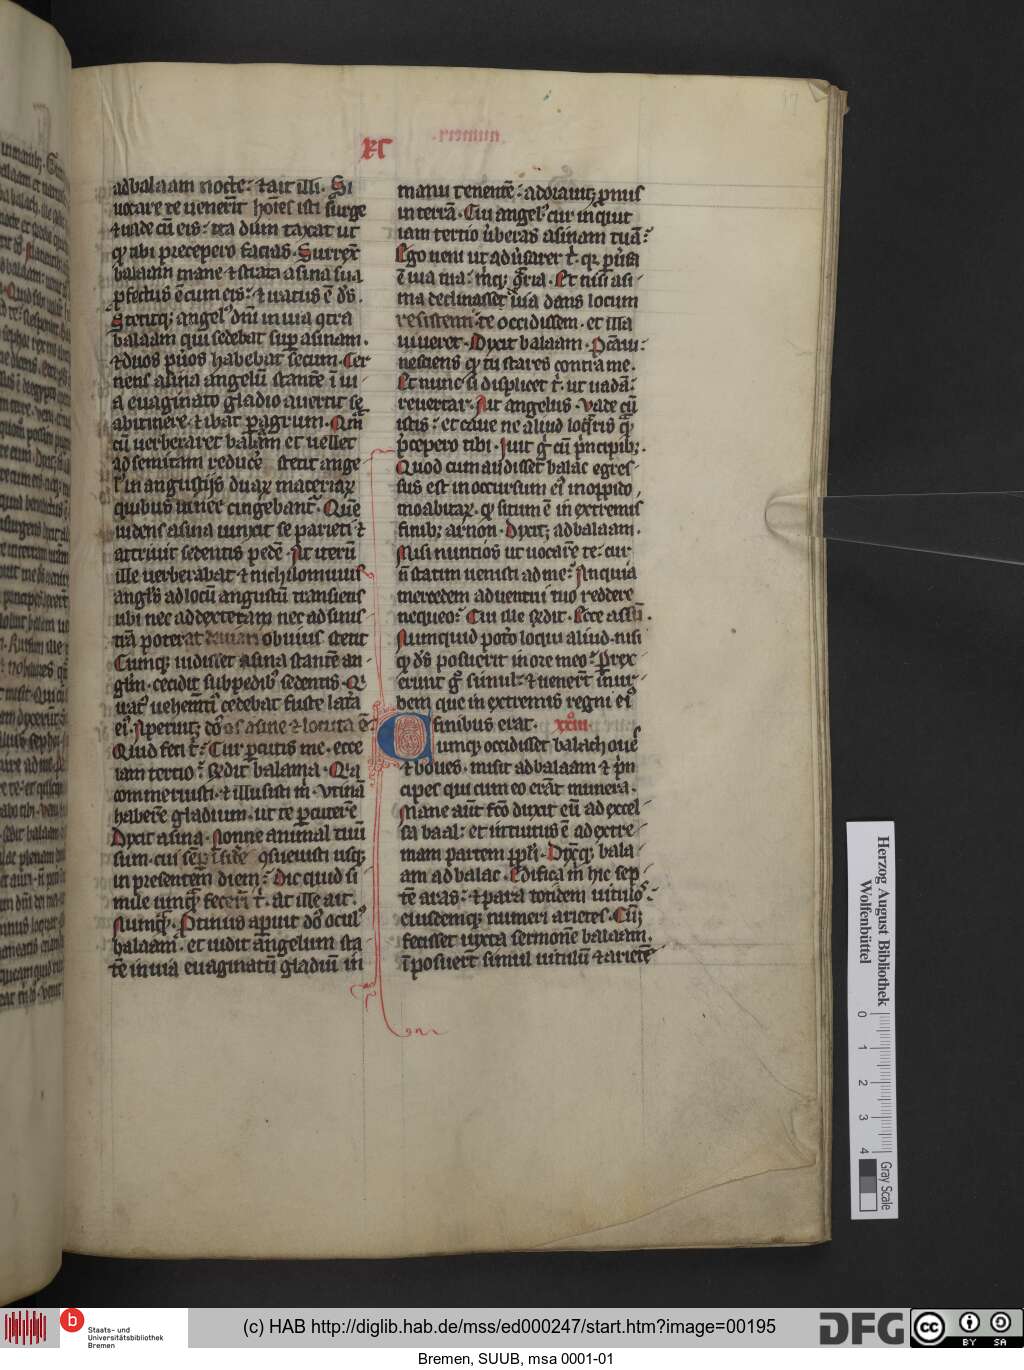 RI
ad balaam nocte: ⁊ ait illi. Si
uocare te uenerīt hoīes isti surge
⁊ uade cū eis: ita dum taxat ut
qͥ tibi precepero facias. Surrex̄
balaam mane ⁊ strata asina sua
ꝓfectus ē cum eis: ⁊ iratus ē dꝰs.
Stetitqꝫ angelꝰ dn̄i in uia ꝯtra
balaam qui sedebat suꝑ asinam.
⁊ duos pu̾os habebat secum. Cer
nens asina angelū stantē ī ui
a euaginato gladio auertit se
ab itinere. ⁊ ibat ꝑ agrum. Qm̄
cū uerberaret balam et uellet
ad semitam reduce̾ stetit ange
lꝰ in angustijs duaꝝ maceriaꝝ
quibus uinee cingebant̾. Quē
uidens asina iunxit se parieti ⁊
attriuit sedentis pedē. At iterū
ille uerberabat ⁊ nichilominus
angl̄s ad locū angustū transiens
ubi nec ad dexteram nec ad sinis
tra poterat deuiari obuius stetit
Cumqꝫ uidisset asina stantē an
glm̄. cecidit sub pedibꝰ sedentis. Q
uat̾ uehem̄ti cedebat fuste lat̾a
eiꝰ. Aperuitqꝫ dn̄s os asine ⁊ locuta ē
Quid feci t̾. Cur ꝑcutis me. ecce
iam tertio? R̄edit balama. Qia
commeruisti. ⁊ illusisti m̄. Vtinā
haberē gladium. ut te ꝑcuterē
Dixit asina. Nonne animal tuū
sum. cui semꝑ sede ꝯsueuisti usqꝫ
in presentem diem? Dic quid si
mile unqꝫ fecerī t̾. at ille ait.
Nunqꝫ. Protinus aꝑuit dn̄s oculꝰ
balaam. et uidit angelum sta
tē in uia euaginatū gladiū in
manu tenentē: adorauitqꝫ ꝓnus
in terrā. Cui angelꝰ cur inquit
iam tertio ūberas asinam tuā?
Ego ueni ut adu̾sarer t̾. qꝛ ꝑu̾sa
ē uia tua: m̄qꝫ ꝯtria. Et nisi asi
na declinasset uia dans locum
resistenti te occidissem. et illa
uiueret. Dixit balaam. Peccaui:
nesciens qͥ tu stares contra me.
Et nunc si displicet t̾. ut uadā:
reuertar. Ait angelus. Vade cū
istis: et caue ne aliud loq̄ris qͣ
p̄cepero tibi. Iuit g̾ cū p̾ncipibꝫ.
Quod cum audisset balac egres
sus est in occursum eiꝰ in oppido
moabitaꝝ. qͥ situm ē in extremis
finibꝫ arnon. Dixitqꝫ ad balaam.
Misi nuntios ut uocarē te: cur
n̄ statim uenisti ad me? An quia
mercedem aduentui tuo reddere
nequeo? Cui ille R̄edit. Ecce assū.
Numquid poto̾ loqui aliud. nisi
qͥ dꝰs posuerit in ore meo? Perrex
erunt g̾ simul: ⁊ uener̄t in ur
bem que in extremis regni eiꝰ
finibus erat. xxiii
Cumqꝫ occidisset balach oues
⁊ boues. misit ad balaam ⁊ p̾n
cipes qui cum eo erāt munera.
Mane aūt fc̄o duxit eū ad excel
sa baal: et intuitus ē ad extre
mam partem ppl̄i. Dixitqꝫ bala
am ad balac. Edifica m̄ hic sep
tē aras: ⁊ para totidem uitulos
eiusdemqꝫ numeri arietes. Cūqꝫ
fecisset iuxta sermonē balaam.
īposuer̄t simul uitulū ⁊ arietē
Herzog August Bibliothek
Wolfenbüttel
0 1 2 3 4
Gray Scale
b Staats- und
Universitätsbibliothek
Bremen
(c) HAB http://diglib.hab.de/mss/ed000247/start.htm?image=00195
DFG
cc BY SA
Bremen, SUUB, msa 0001-01